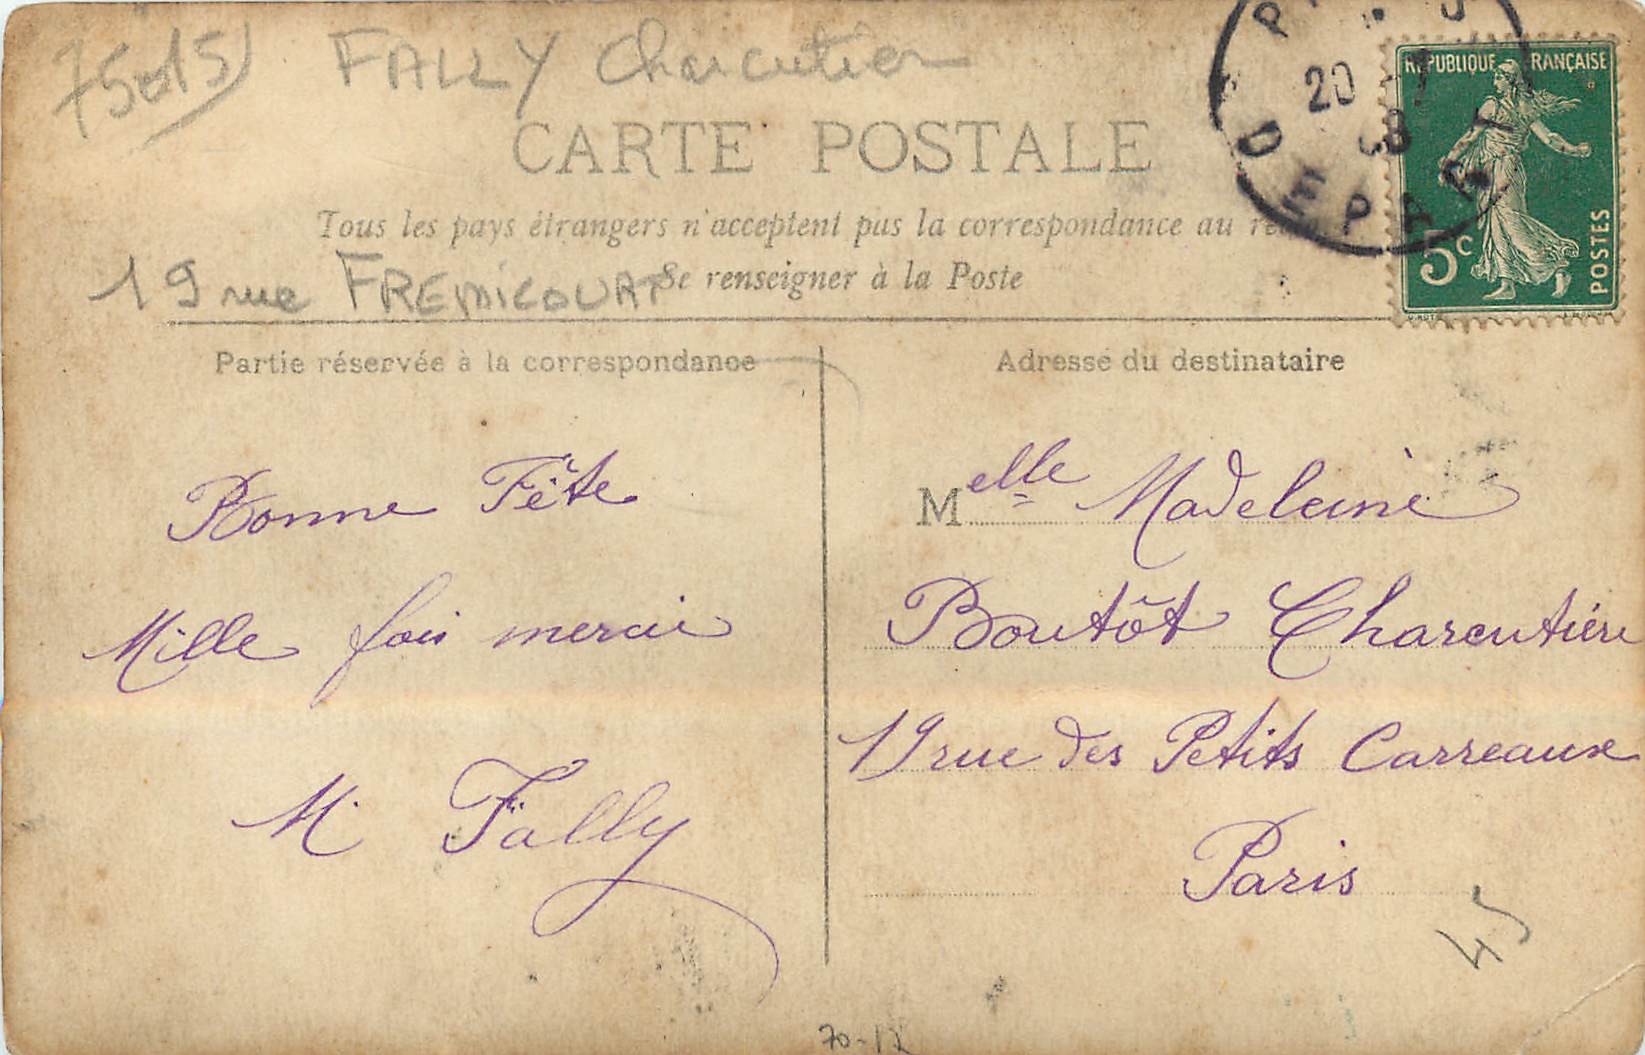 75015 FALLY Charcutier
CARTE POSTALE
Tous les pays étrangers n'acceptent pas la correspondance au
19 rue FREMICOURT Se renseigner à la Poste
RÉPUBLIQUE FRANÇAISE
5c POSTES
20
DEPART
Partie réservée à la correspondance
Bonne Fête
Mille fois merci
M Fally
Adresse du destinataire
Melle Madeleine
Boutôt Charcutière
19 rue des Petits Carreaux
Paris
45
70-12